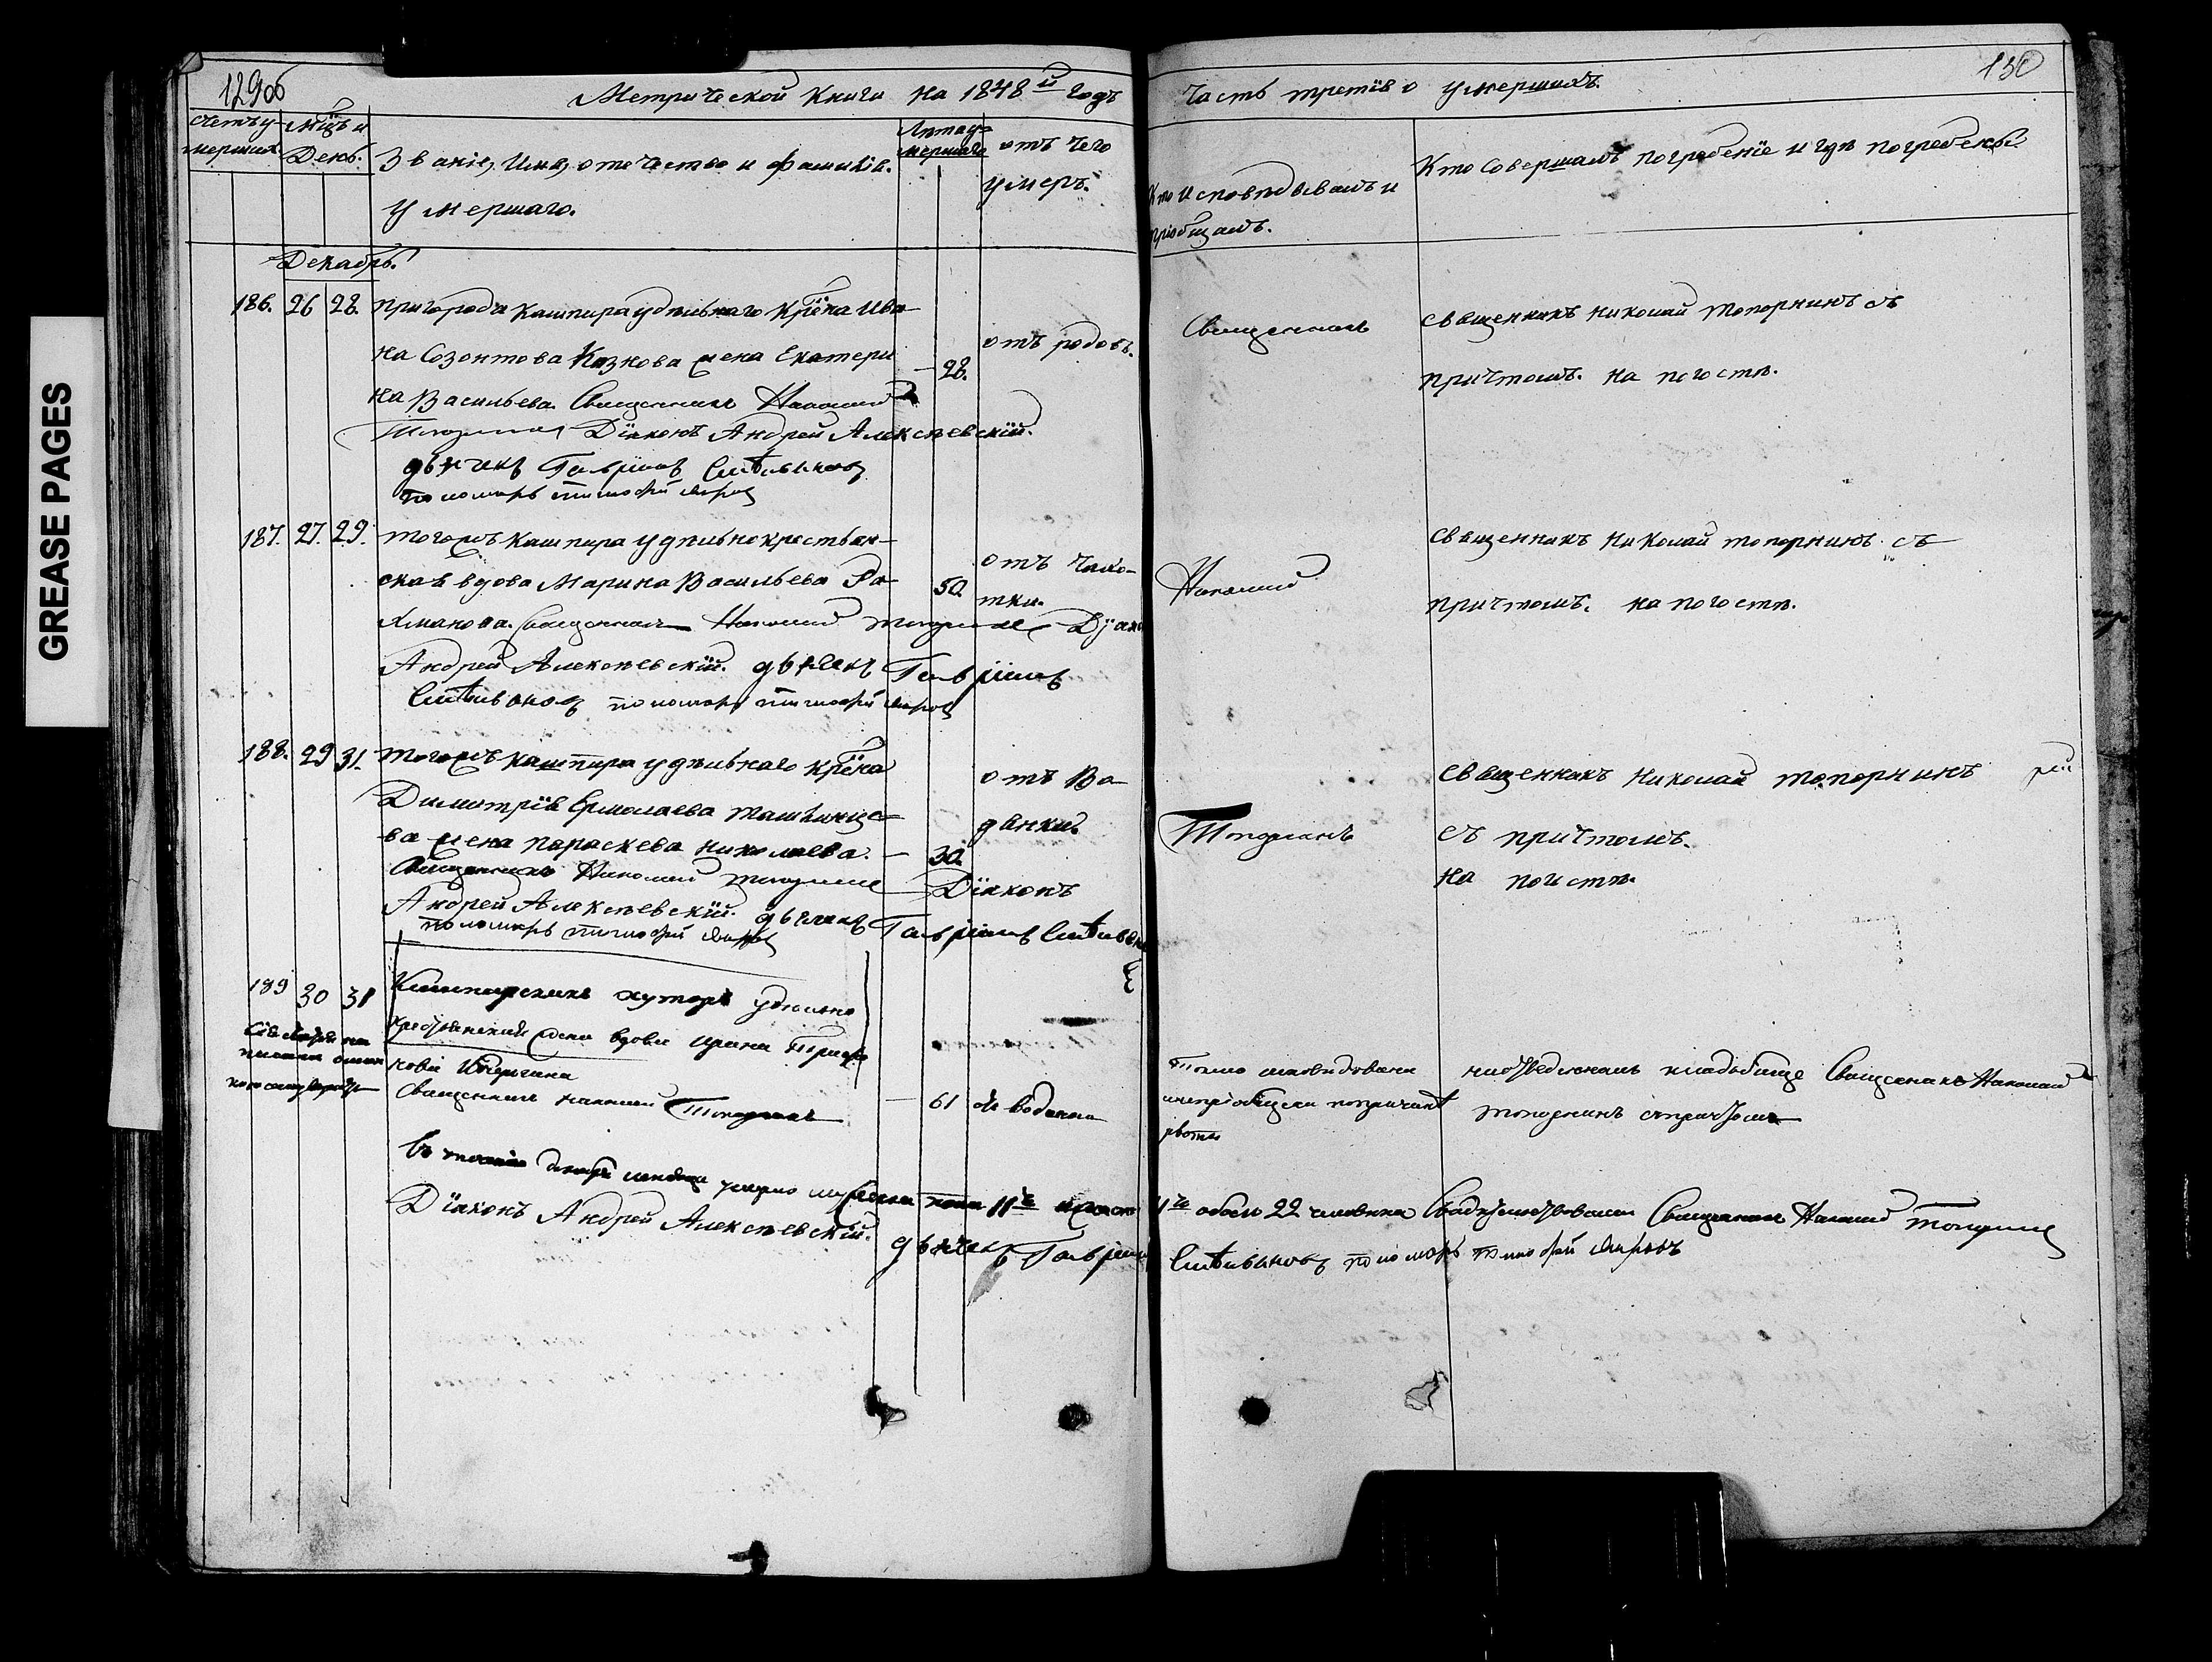 GREASE PAGES
129об
Метрической Книги на 1848й годъ
Часть третія о умершихъ.
130
Счетъ у-
мершихъ
Мцъ и
День.
Званіе, Имя, отечество и фамилія.
умершаго.
Лѣта у-
мершаго
отъ чего
умеръ.
Кто Исповѣдывалъ и
пріобщалъ.
Кто Совершалъ погребеніе и гдѣ погребены
Декабрь.
186. 26 28. пригорода Кашпира удѣльнаго Крѣна Ива-
на Созонтова Казнова жена Екатери
на Васильева. Священникъ Николай
Топорнинъ Діаконъ Андрей Алексѣевскій.
дьячекъ Гавріилъ
пономарь Тимофей
28.
отъ родовъ.
Священникъ
священникъ Николай Топорнинъ съ
причтомъ. на погостѣ.
187. 27. 29. тогожъ Кашпира удѣльнокрестьян-
ская вдова Марина Васильева Ра-
хманова. Священникъ Николай Топорнинъ Діако
Андрей Алексѣевскій. дьячекъ Гавріилъ
пономарь Тимофей
50.
отъ Чахо-
тки.
Николай
священникъ Николай Топорнинъ съ
причтомъ. на погостѣ.
188. 29 31. тогожъ Кашпира удѣльнаго Крѣна
Димитрія Ермолаева
ва жена Параскева Николаева. — 30.
Священникъ Николай Топорнинъ Діаконъ
Андрей Алексѣевскій. дьячекъ Гавріилъ
пономарь Тимофей
отъ Во-
дянки.
Топорнинъ
священникъ Николай Топорнинъ
съ причтомъ.
на погостѣ.
189 30 31 Кашпирскихъ хуторъ удѣльно
крестьянская жена вдова Ирина
Священникъ Николай Топорнинъ — 61 отъ водянки
Токмо исповѣдована
и непріобщена по причинѣ
рвоты
кладбище Священникъ Николай
Топорнинъ съ причтомъ
Въ теченіе декабря мѣсяца умерло мужеска пола 11ть и женска 11ть обоего 22 человѣка Священникъ Николай Топорнинъ
Діаконъ Андрей Алексѣевскій. дьячекъ Гавріилъ пономарь Тимофей